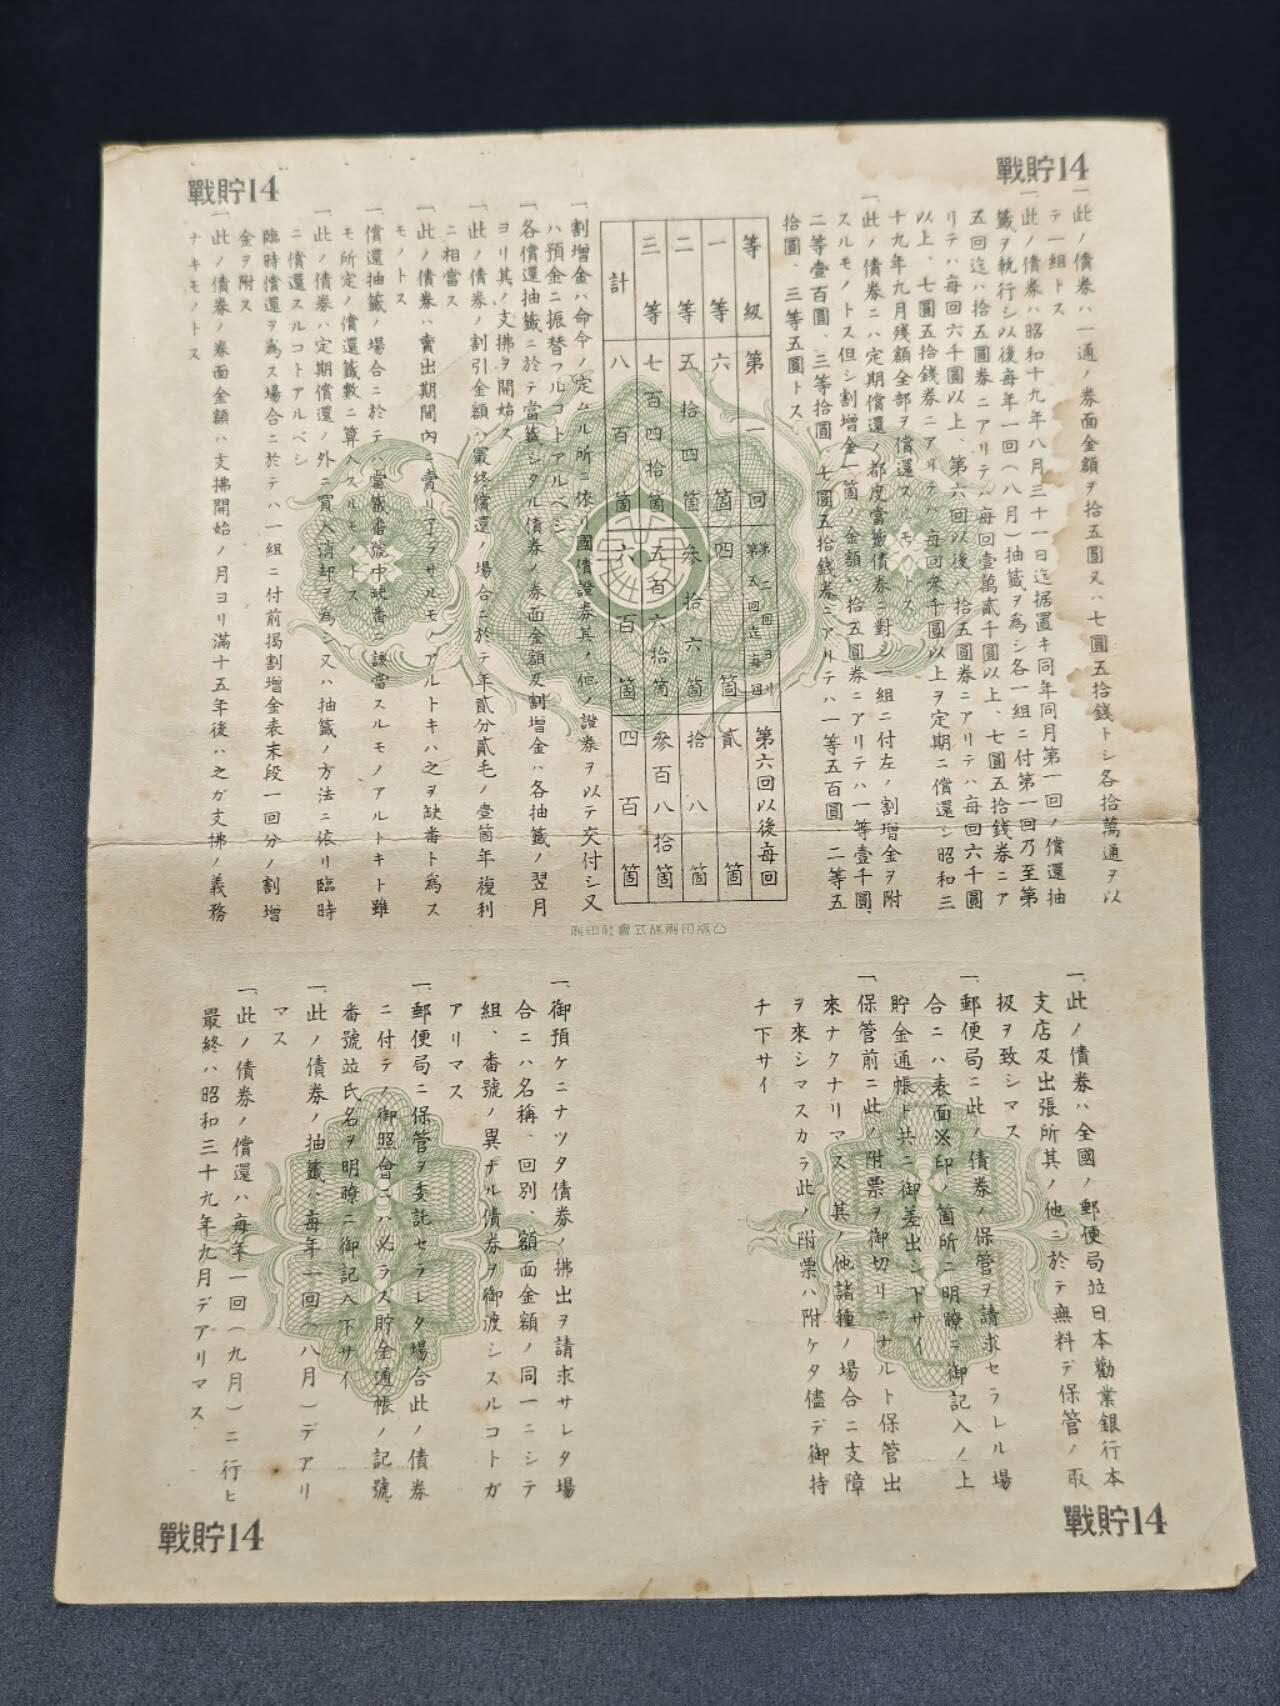 戰貯14
戰貯14
一、此ノ債券ハ一通ノ券面金額ヲ拾五圓又ハ七圓五拾錢トシ各拾萬通ヲ以
テ一組トス
一、此ノ債券ハ昭和十九年八月三十一日迄据置キ同年同月第一回ノ償還抽
籤ヲ執行シ以後每年一回(八月)抽籤ヲ為シ各一組ニ付第一回乃至第
五回迄ハ拾五圓券ニアリテハ每回壹萬貳千圓以上、七圓五拾錢券ニア
リテハ每回六千圓以上、第六回以後ハ拾五圓券ニアリテハ每回六千圓
以上、七圓五拾錢券ニアリテハ每回參千圓以上ヲ定期ニ償還シ昭和三
十九年九月殘額全部ヲ償還スルモノトス
一、此ノ債券ニハ定期償還ノ都度當籤債券ニ對シ一組ニ付左ノ割增金ヲ附
スルモノトス但シ割增金一箇ノ金額ハ拾五圓券ニアリテハ一等壹千圓、
二等壹百圓、三等拾圓、七圓五拾錢券ニアリテハ一等五百圓、二等五
拾圓、三等五圓トス
等級 第一回 第二回ヨリ第五回迄每回 第六回以後每回
一等 六箇 四箇 貳箇
二等 五拾四箇 參拾六箇 拾八箇
三等 七百四拾箇 五百六拾箇 參百八拾箇
計 八百箇 六百箇 四百箇
一、割增金ハ命令ノ定ムル所ニ依リ國債證券其ノ他ノ證券ヲ以テ交付シ又
ハ預金ニ振替フルコトアルベシ
一、各償還抽籤ニ於テ當籤シタル債券ノ券面金額及割增金ハ各抽籤ノ翌月
ヨリ其ノ支拂ヲ開始ス
一、此ノ債券ノ割引金額ハ最終償還ノ場合ニ於テ年貳分貳毛ノ壹箇年複利
ニ相當ス
一、此ノ債券ハ賣出期間內ニ賣リ了ラサルモノアルトキハ之ヲ缺番ト為ス
モノトス
一、償還抽籤ノ場合ニ於テハ當籤番號中缺番ニ該當スルモノアルトキト雖
モ所定ノ償還籤數ニ算入スルモノトス
一、此ノ債券ハ定期償還ノ外ニ買入消却ヲ為シ又ハ抽籤ノ方法ニ依リ臨時
ニ償還スルコトアルベシ
臨時償還ヲ為ス場合ニ於テハ一組ニ付前揭割增金表末段一回分ノ割增
金ヲ附ス
一、此ノ債券ノ券面金額ハ支拂開始ノ月ヨリ滿十五年後ハ之ガ支拂ノ義務
ナキモノトス
凸版印刷株式會社印刷
一、此ノ債券ハ全國ノ郵便局竝日本勸業銀行本
支店及出張所其ノ他ニ於テ無料デ保管ノ取
扱ヲ致シマス
一、郵便局ニ此ノ債券ノ保管ヲ請求セラレル場
合ニハ表面※印ノ箇所ニ明瞭ニ御記入ノ上
貯金通帳ト共ニ御差出シ下サイ
一、保管前ニ此ノ附票ヲ御切リニナルト保管出
來ナクナリマス 其ノ他諸種ノ場合ニ支障
ヲ來シマスカラ此ノ附票ハ附ケタ儘デ御持
チ下サイ
一、御預ケニナツタ債券ノ拂出ヲ請求サレタ場
合ニハ名稱、回別、額面金額ノ同一ニシテ
組、番號ノ異ナル債券ヲ御渡シスルコトガ
アリマス
一、郵便局ニ保管ヲ委託セラレタ場合此ノ債券
ニ付テノ御照會ニハ必ラス貯金通帳ノ記號
番號竝氏名ヲ明瞭ニ御記入下サイ
一、此ノ債券ノ抽籤ハ每年一回(八月)デアリ
マス
一、此ノ債券ノ償還ハ每年一回(九月)ニ行ヒ
最終ハ昭和三十九年九月デアリマス
戰貯14
戰貯14